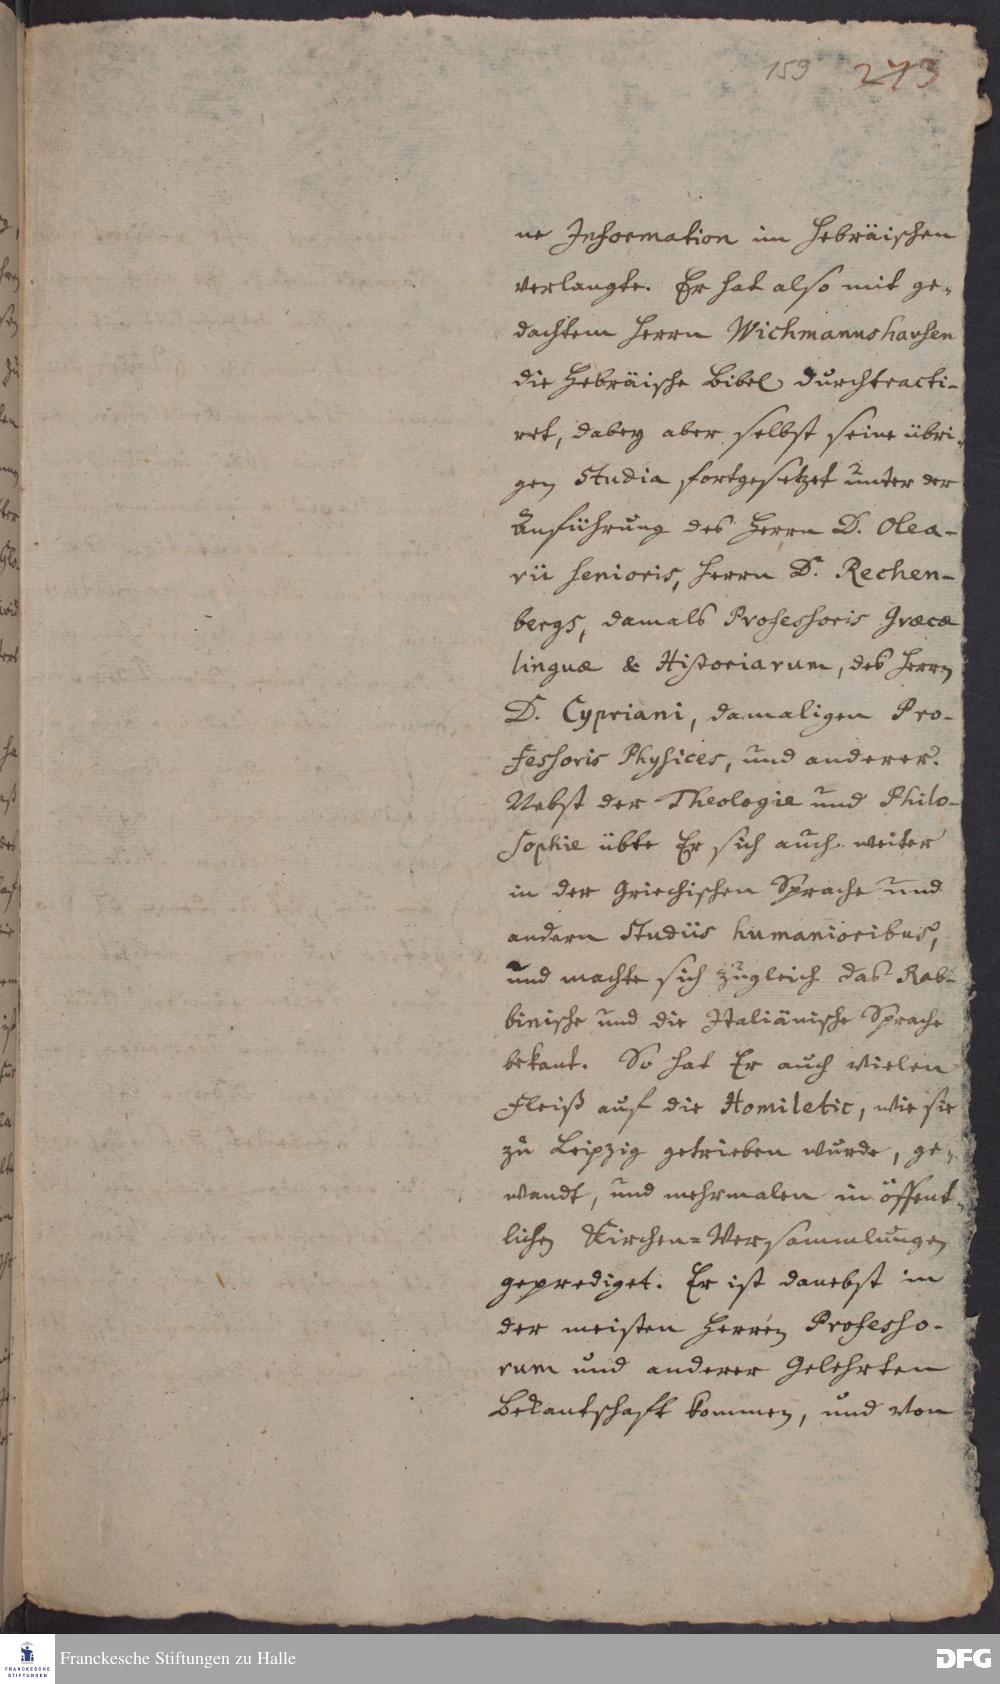 159 273
ne Information im Hebräischen
verlangte. Er hat also mit ge-
dachtem Herrn Wichmannshausen
die Hebräische Bibel durchtracti-
ret, dabey aber selbst seine übri-
gen Studia fortgesetzet unter der
Anführung des Herrn D. Olea-
rii Senioris, Herrn D. Rechen-
bergs, damals Professoris Græcæ
linguæ & Historiarum, des Herrn
D. Cypriani, damaligen Pro-
fessoris Physices, und anderer.
Nebst der Theologie und Philo-
sophie übte Er sich auch weiter
in der Griechischen Sprache und
andern Studiis humanioribus,
und machte sich zugleich das Rab-
binische und die Italiänische Sprache
bekant. So hat Er auch vielen
Fleiß auf die Homiletic, wie sie
zu Leipzig getrieben wurde, ge-
wandt, und mehrmalen in öffent-
lichen Kirchen-Versammlungen
geprediget. Er ist danebst in
der meisten Herren Professo-
rum und anderer Gelehrten
Bekantschafft kommen, und von
Franckesche Stiftungen zu Halle
FRANCKESCHE
STIFTUNGEN
DFG